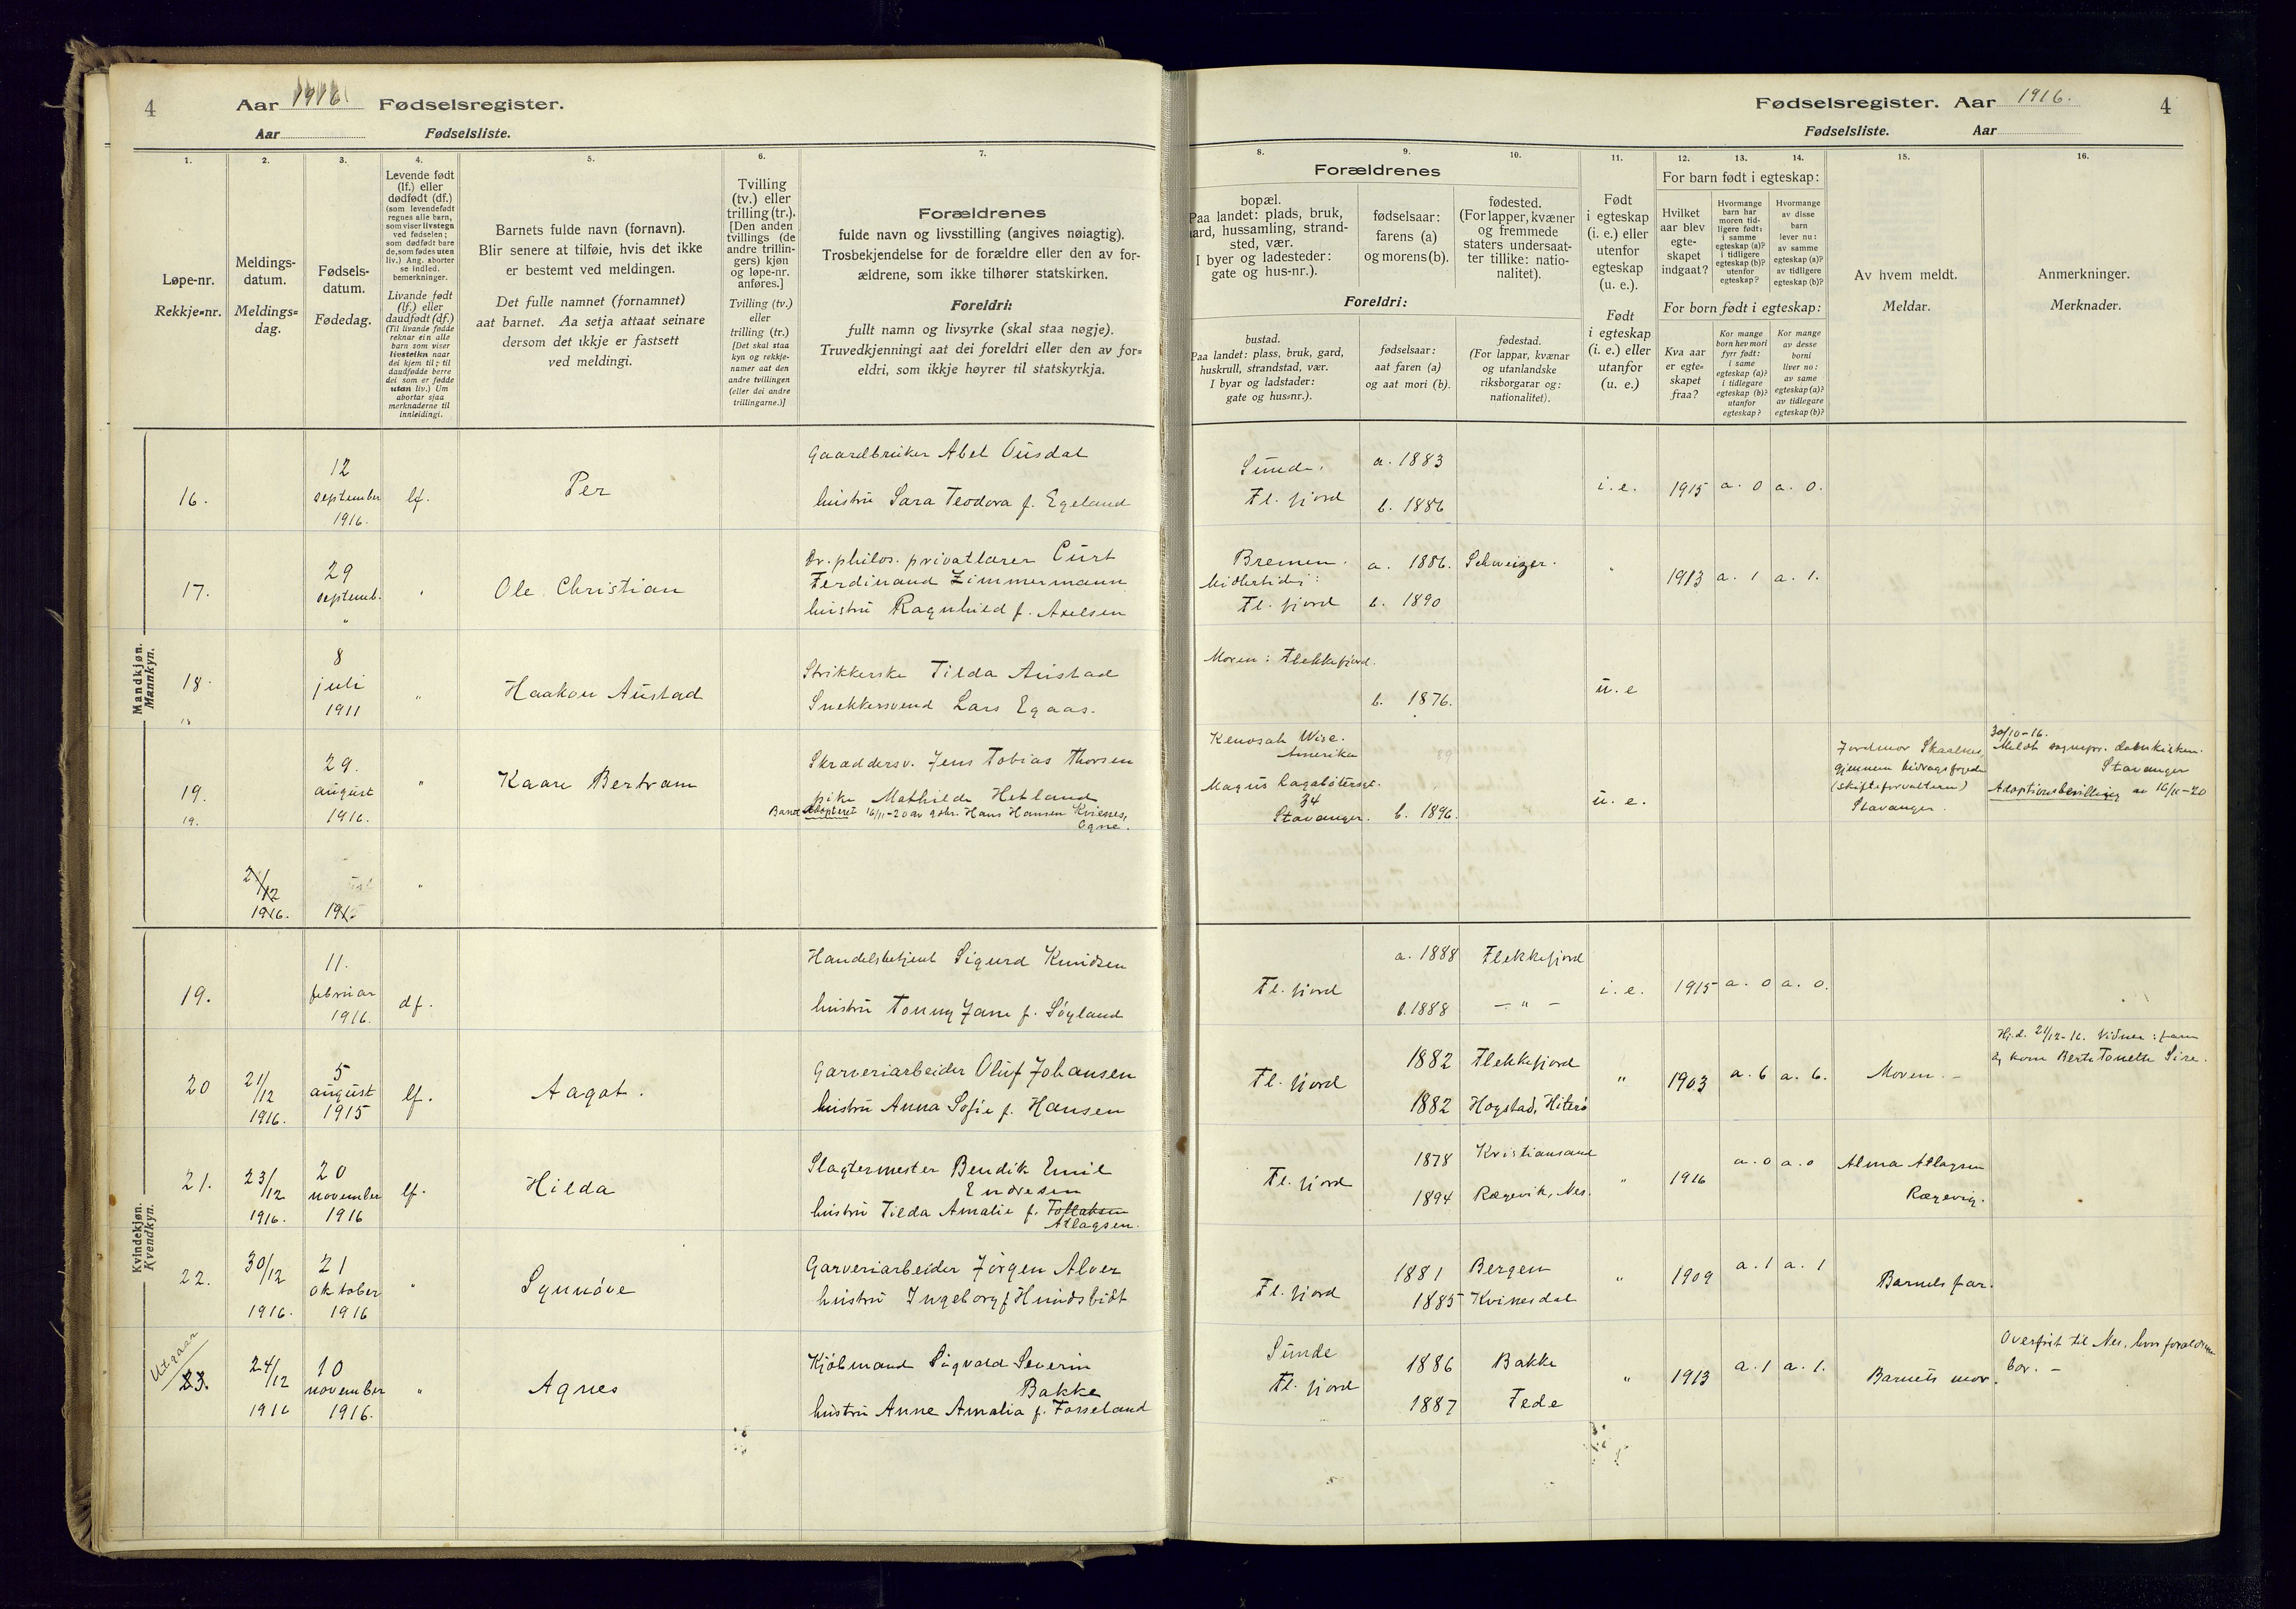 4
Aar 1916 Fødselsregister.
Aar Fødselsliste.
Fødselsregister. Aar 1916.
4
Fødselsliste. Aar
1.
Løpe-nr.
Rekkje-nr.
2.
Meldings-
datum.
Meldings-
dag.
3.
Fødsels-
datum.
Fødedag.
4.
Levende født
(lf.) eller
dødfødt (df.)
(som levendefødt
regnes alle barn,
som viser livstegn
ved fødselen;
som dødfødt bare
de, som fødes uten
liv.) Ang. aborter
se indled.
bemerkninger.
Livande født
(lf.) eller
daudfødt (df.)
(Til livande fødde
reknar ein alle
barn som viser
livsteikn naar
dei kjem til; til
daudfødde berre
dei som er fødde
utan liv.) Um
abortar sjaa
merknaderne til
innleidingi.
5.
Barnets fulde navn (fornavn).
Blir senere at tilføie, hvis det ikke
er bestemt ved meldingen.
Det fulle namnet (fornamnet)
aat barnet. Aa setja attaat seinare
dersom det ikkje er fastsett
ved meldingi.
6.
Tvilling
(tv.) eller
trilling (tr.).
[Den anden
tvillings (de
andre trillin-
gers) kjøn
og løpe-nr.
anføres.]
Tvilling (tv.)
eller
trilling (tr.)
[Det skal staa
kyn og rekkje-
numer aat den
andre tvillingen
(eller dei andre
trillingarne.)]
7.
Forældrenes
fulde navn og livsstilling (angives nøiagtig).
Trosbekjendelse for de forældre eller den av for-
ældrene, som ikke tilhører statskirken.
Foreldri:
fullt namn og livsyrke (skal staa nøgje).
Truvedkjenningi aat dei foreldri eller den av for-
eldri, som ikkje høyrer til statskyrkja.
Forældrenes
8.
bopæl.
Paa landet: plads, bruk,
gard, hussamling, strand-
sted, vær.
I byer og ladesteder:
gate og hus-nr.).
9.
fødselsaar:
farens (a)
og morens (b).
10.
fødested.
(For lapper, kvæner
og fremmede
staters undersaat-
ter tillike: natio-
nalitet).
Foreldri:
bustad.
Paa landet: plass, bruk, gard,
huskrull, strandstad, vær.
I byar og ladstader:
gate og hus-nr.).
fødselsaar:
aat faren (a)
og aat mori (b).
fødestad.
(For lappar, kvænar
og utanlandske
riksborgarar og:
nationalitet).
11.
Født
i egteskap
(i. e.) eller
utenfor
egteskap
(u. e.).
Født
i egteskap
(i. e.) eller
utanfor
(u. e.)
For barn født i egteskap:
12.
Hvilket
aar blev
egte-
skapet
indgaat?
13.
Hvormange
barn har
moren tid-
ligere født:
i samme
egteskap (a)?
i tidligere
egteskap (b)?
utenfor
egteskap?
14.
Hvormange
av disse
barn
lever nu:
av samme
egteskap (a)?
av tidligere
egteskap (b)?
For born født i egteskap:
Kva aar
er egte-
skapet
fraa?
Kor mange
born hev mori
fyrr født:
i same
egteskap (a)?
i tidlegare
egteskap (b)?
utanfor
egteskap?
Kor mange
av desse
borni
liver no:
av same
egteskap (a)?
av tidlegare
egteskap (b)?
15.
Av hvem meldt.
Meldar.
16.
Anmerkninger.
Merknader.
Mandkjøn.
Mannkyn.
16.
12
september
1916.
lf.
Per
Gaardbruker Abel Ousdal
hustru Sara Teodora f. Egeland
Sunde.
Fl. fjord
a. 1883
b. 1886
i. e.
1915
a. 0
a. 0.
17.
29
septemb.
"
"
Ole Christian
Dr. philos. privatlærer Curt
Ferdinand Zimmermann
hustru Ragnhild f. Axelsen
Bremen.
Midlertidig:
Fl. fjord
a. 1886.
b. 1890
Schweizer.
"
1913
a. 1
a. 1.
18.
8
juli
1911
"
Haakon Austad
Strikkerske Tilda Austad
Snekkersvend Lars Egaas.
Moren: Flekkefjord.
b. 1876.
u. e
19.
19.
29.
august
1916.
"
Kaare Bertram
Skræddersv. Jens Tobias Thorsen
pike Mathilde Hetland
Barnet adopteret 16/11-20 av gdbr. Hans Hansen Kvienes,
Ogne.
Kenosah Wise.
Amerika
Magnus Lagabøtersgt.
34
Stavanger.
b. 1896.
u. e.
Jordmor Skaalnes,
gjennem bidragsfogden
(skifteforvalteren)
Stavanger.
30/10-16.
Meldt sognepr. domkirken.
Stavanger
Adoptionsbevilling av 16/11-20
2/12
1916.
191
"
Kvindekjøn.
Kvendkyn.
19.
11.
februar
1916.
df.
Handelsbetjent Sigurd Knudsen
hustru Tonny Jane f. Søyland
Fl. fjord
a. 1888
b. 1888
Flekkefjord
— " —
i. e.
1915
a. 0
a. 0.
20
21/12
1916.
5
august
1915
lf.
Aagot.
Garveriarbeider Oluf Johansen
hustru Anna Sofie f. Hansen
Fl. fjord
1882
1882
Flekkefjord
Hogstad, Hiterø
"
1903
a. 6
a. 6.
Moren. -
Hj.d. 21/12-16. Vidner: Faren
og kone Berte Tonette Sire.
21.
23/12
1916.
20
november
1916
lf.
Hilda
Slagtermester Bendik Emil
Endresen
hustru Tilda Amalie f. Tollaksen
Atlagsen.
Fl. fjord
1878
1894
Kristiansand
Rægevik, Nes.
"
1916
a. 0
a. 0
Alma Atlagsen
Rægevig.
22.
30/12
1916.
21
oktober
1916
"
Synnøve
Garveriarbeider Jørgen Alver
hustru Ingeborg f Hundsbidt
Fl. fjord
1881
1885
Bergen
Kvinesdal
"
1909
a. 1
a. 1
Barnets far.
Utgaar
23.
24/12
1916
10
november
1916.
"
Agnes
Kjøbmand Sigvald Severin
Bakke
hustru Anne Amalia f. Fosseland
Sunde
Fl. fjord
1886
1887
Bakke
Fede
"
1913
a. 1
a. 1.
Barnets mor.
Overført til Nes, hvor forældrene
bor. -